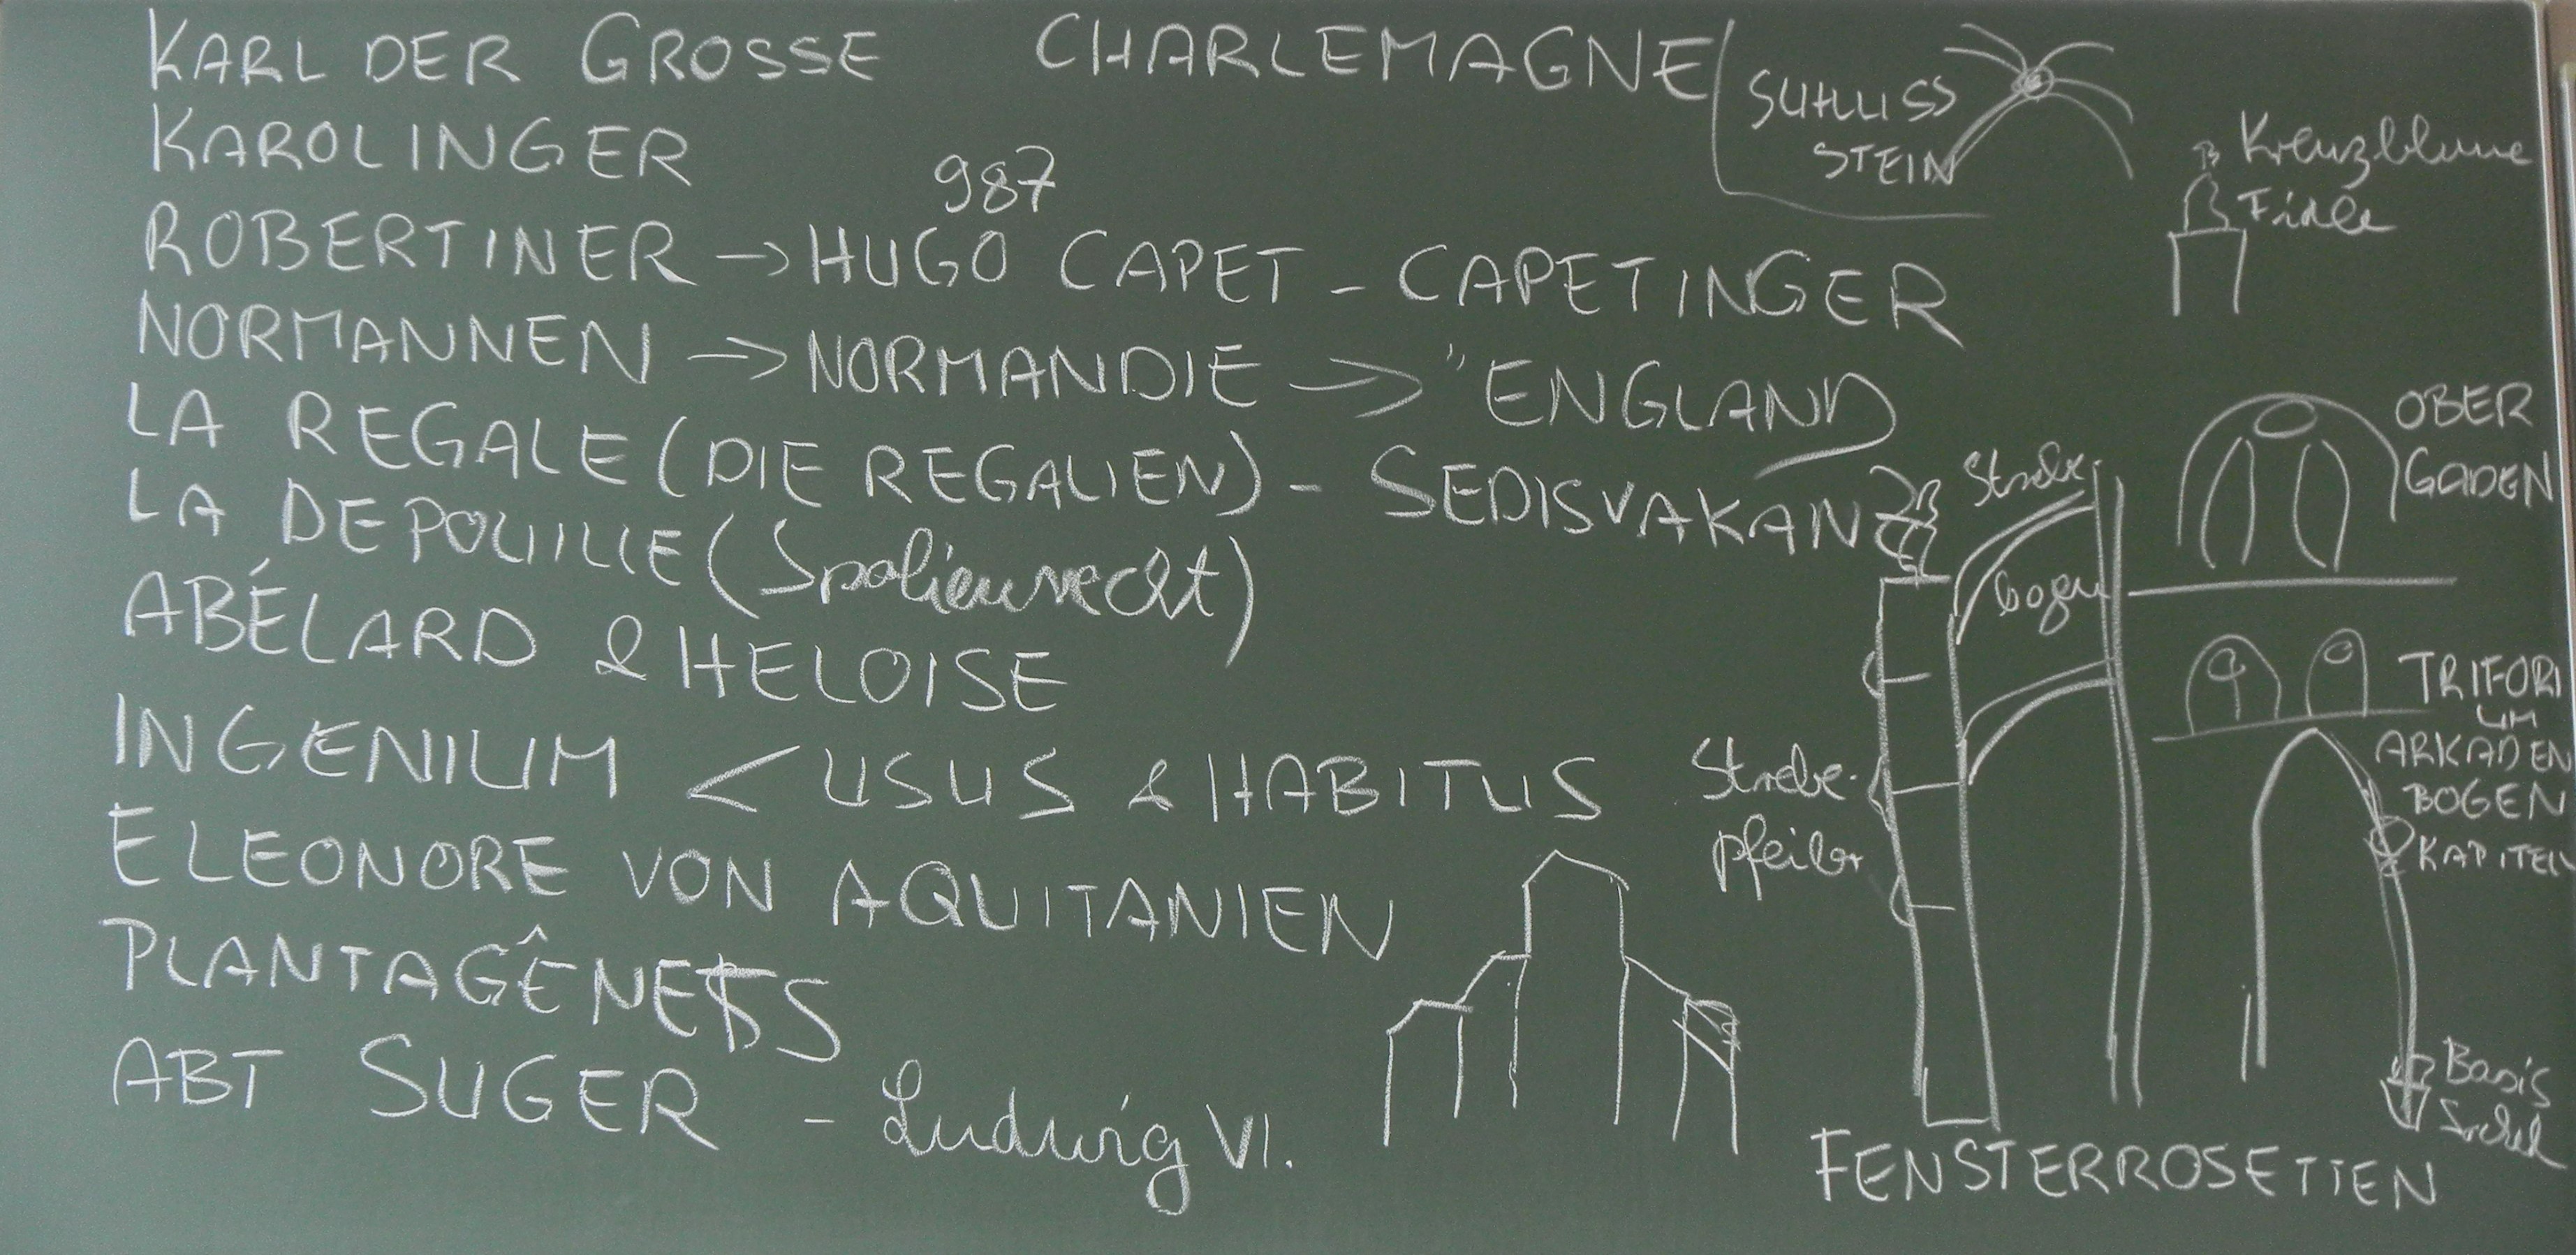 KARL DER GROSSE CHARLEMAGNE
KAROLINGER
987
ROBERTINER → HUGO CAPET - CAPETINGER
NORMANNEN → NORMANDIE → "ENGLAND
LA REGALE (DIE REGALIEN) - SEDISVAKANZ
LA DEPOUILLE (Spolienrecht)
ABÉLARD & HELOISE
INGENIUM < USUS & HABITUS
ELEONORE VON AQUITANIEN
PLANTAGÊNETS
ABT SUGER - Ludwig VI.
SCHLUSS
STEIN
Kreuzblume
Fiale
OBER
GADEN
Strebe-
bogen
TRIFORI
UM
ARKADEN
BOGEN
KAPITELL
Strebe-
pfeiler
Basis
Sockel
FENSTERROSETTEN